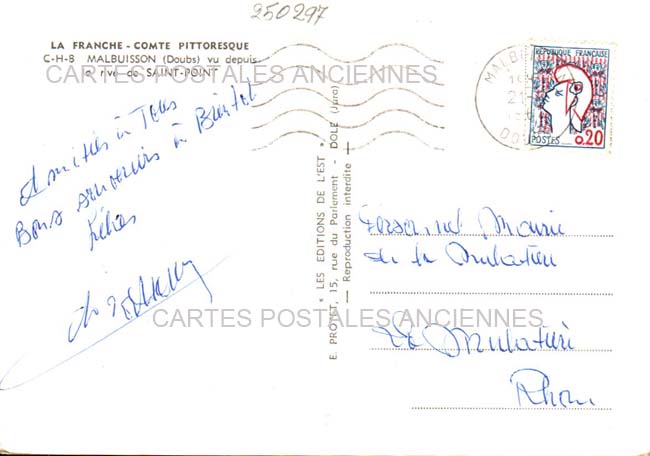 250297
LA FRANCHE-COMTE PITTORESQUE
C-H-8 MALBUISSON (Doubs) vu depuis
la rive de SAINT-POINT
CARTES POSTALES ANCIENNES
Amitiés à Tous
Bons souvenirs à Bientôt
" LES EDITIONS DE L'EST "
E. PROTET, 15, rue du Parlement - DOLE (Jura)
Reproduction interdite
REPUBLIQUE FRANÇAISE
POSTES 0,20
MALBUI
DOU
Personnel Mairie
de la Mulatière
CARTES POSTALES ANCIENNES
La Mulatière
Rhône